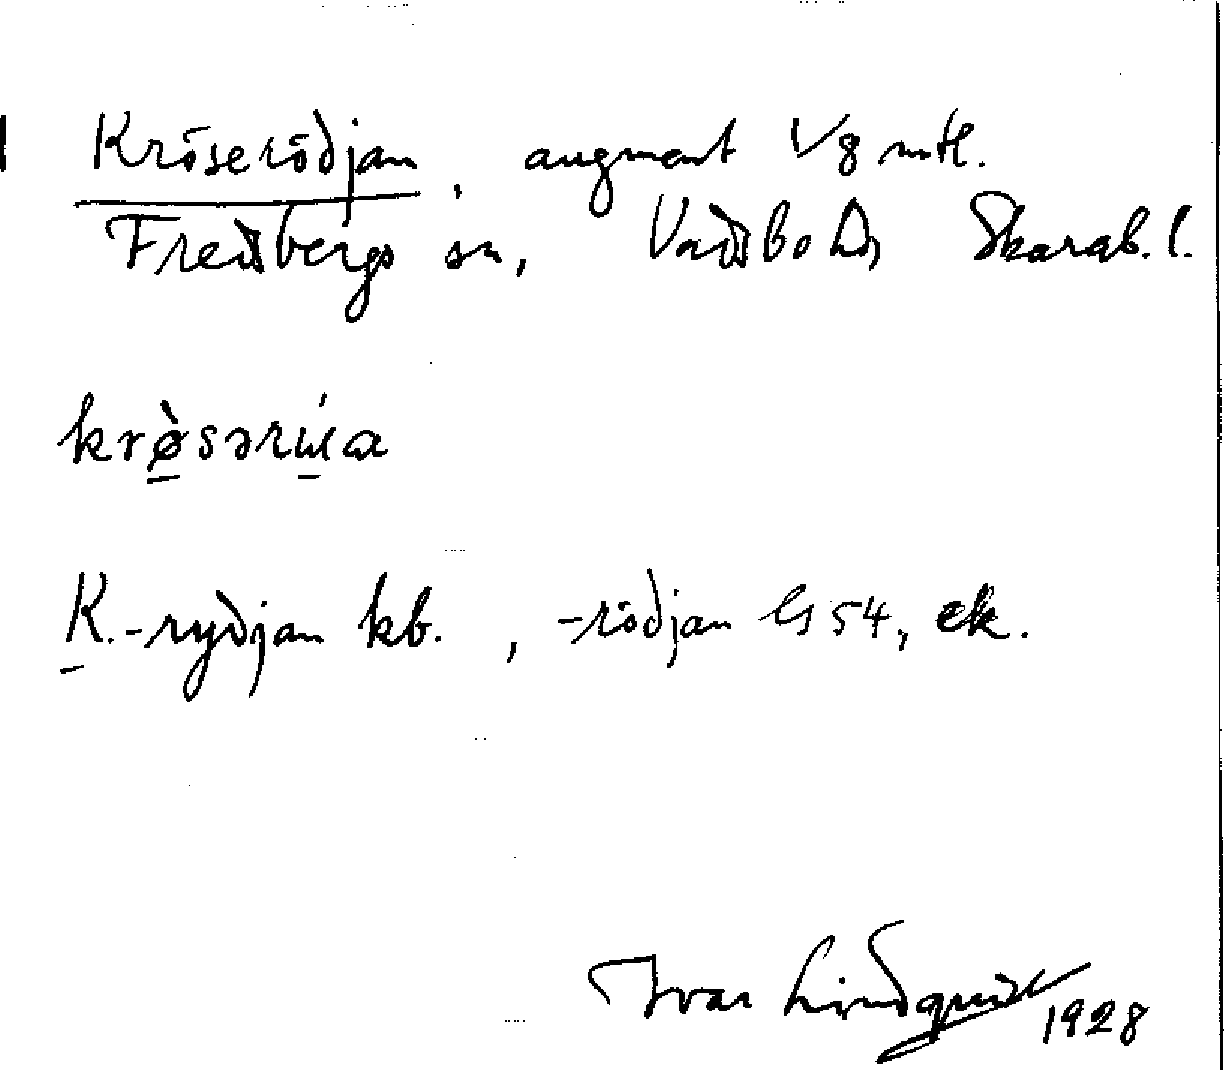 Kröserödjan, augment 1/8 mtl.
Fredsbergs sn, Vadsbo hd, Skarab. l.
krø̀səri̇́a
K.-rydjan kb., -rödjan GS4, ek.
Ivar Lindquist 1928